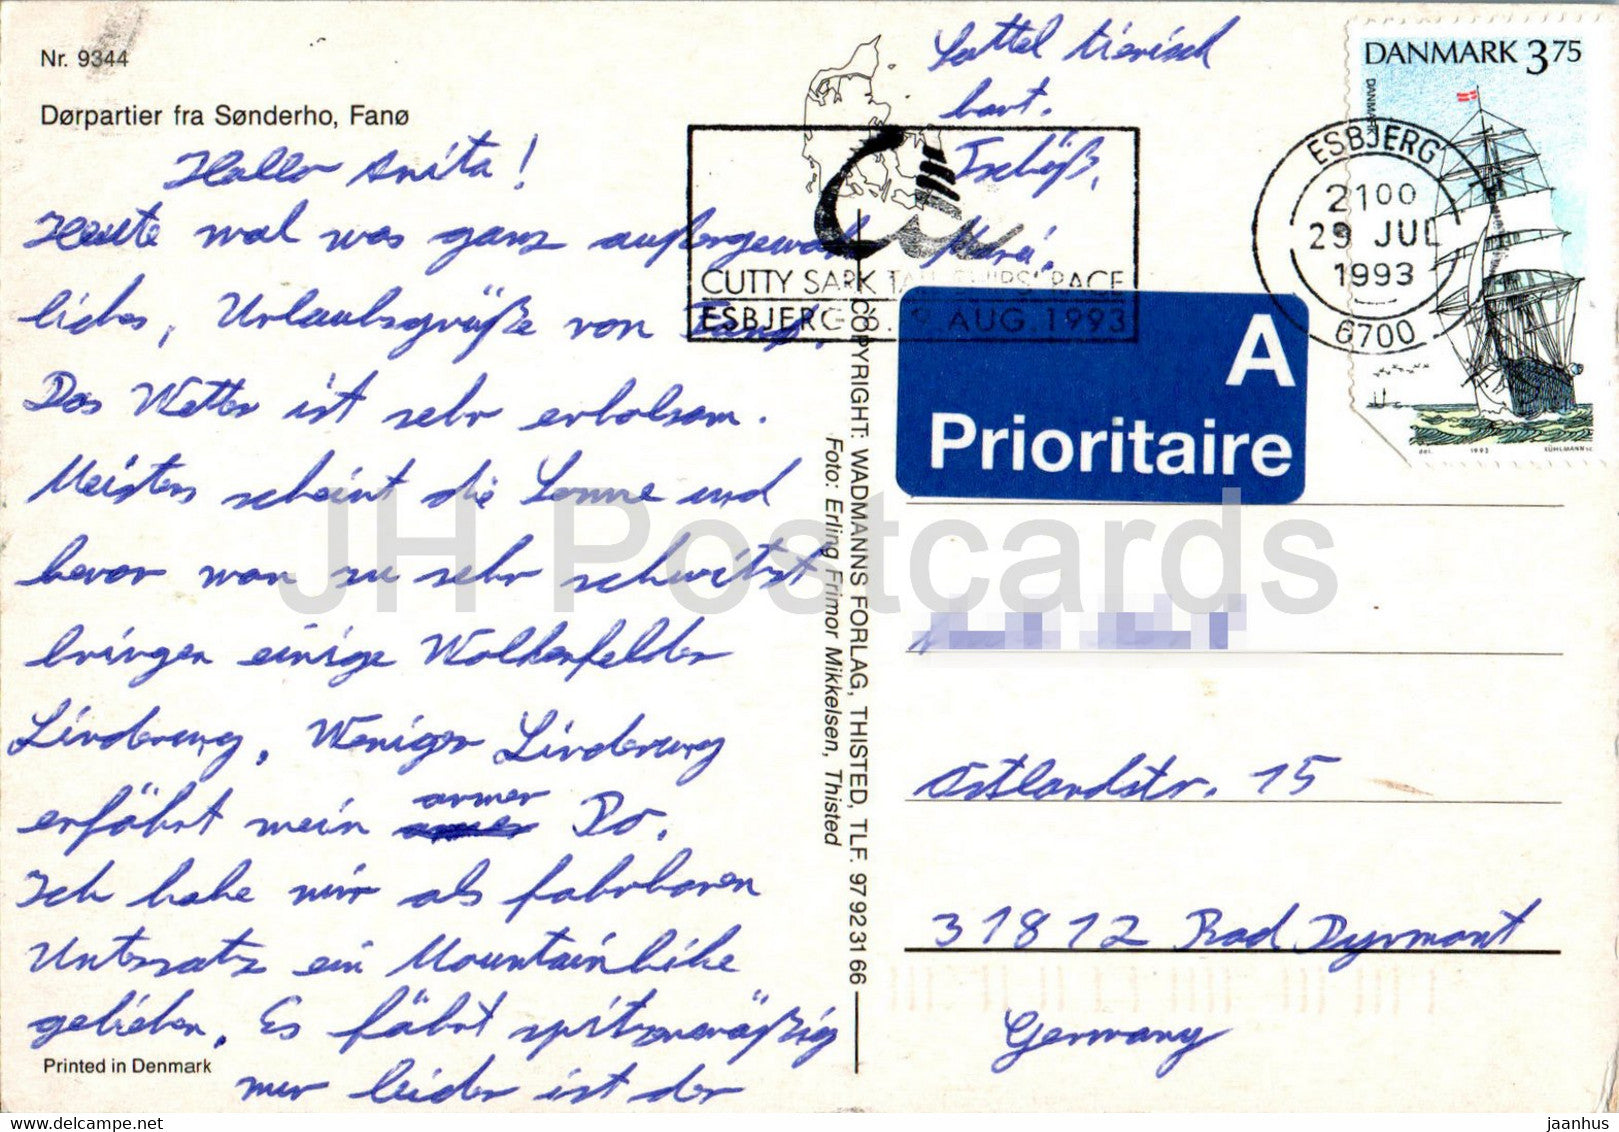 Nr. 9344
Dørpartier fra Sønderho, Fanø
Hallo Anita!
Heute mal was ganz außergewöhn
liches, Urlaubsgrüße von Fanø.
Das Wetter ist sehr erholsam.
Meistens scheint die Sonne und
bevor man zu sehr schwitzt
bringen einige Wolkenfelder
Linderung. Weniger Linderung
erfährt mein armer Po.
Ich habe mir als fahrbaren
Untersatz ein Mountainbike
geliehen. Es fährt spitzenmäßig
nur leider ist der
Printed in Denmark
Sattel tierisch
hart.
Tschüß,
COPYRIGHT: WADMANNS FORLAG, THISTED, TLF. 97 92 31 66
Foto: Erling Frimor Mikkelsen, Thisted
CUTTY SARK TALL SHIPS' RACE
ESBJERG 6.-9. AUG. 1993
A
Prioritaire
ESBJERG
2100
29 JUL
1993
6700
DANMARK 3 75
DANMARK
del. 1993 KÜHLMANN sc.
Ostlandstr. 15
31812 Bad Pyrmont
Germany
JH Postcards
delcampe.net
jaanhus